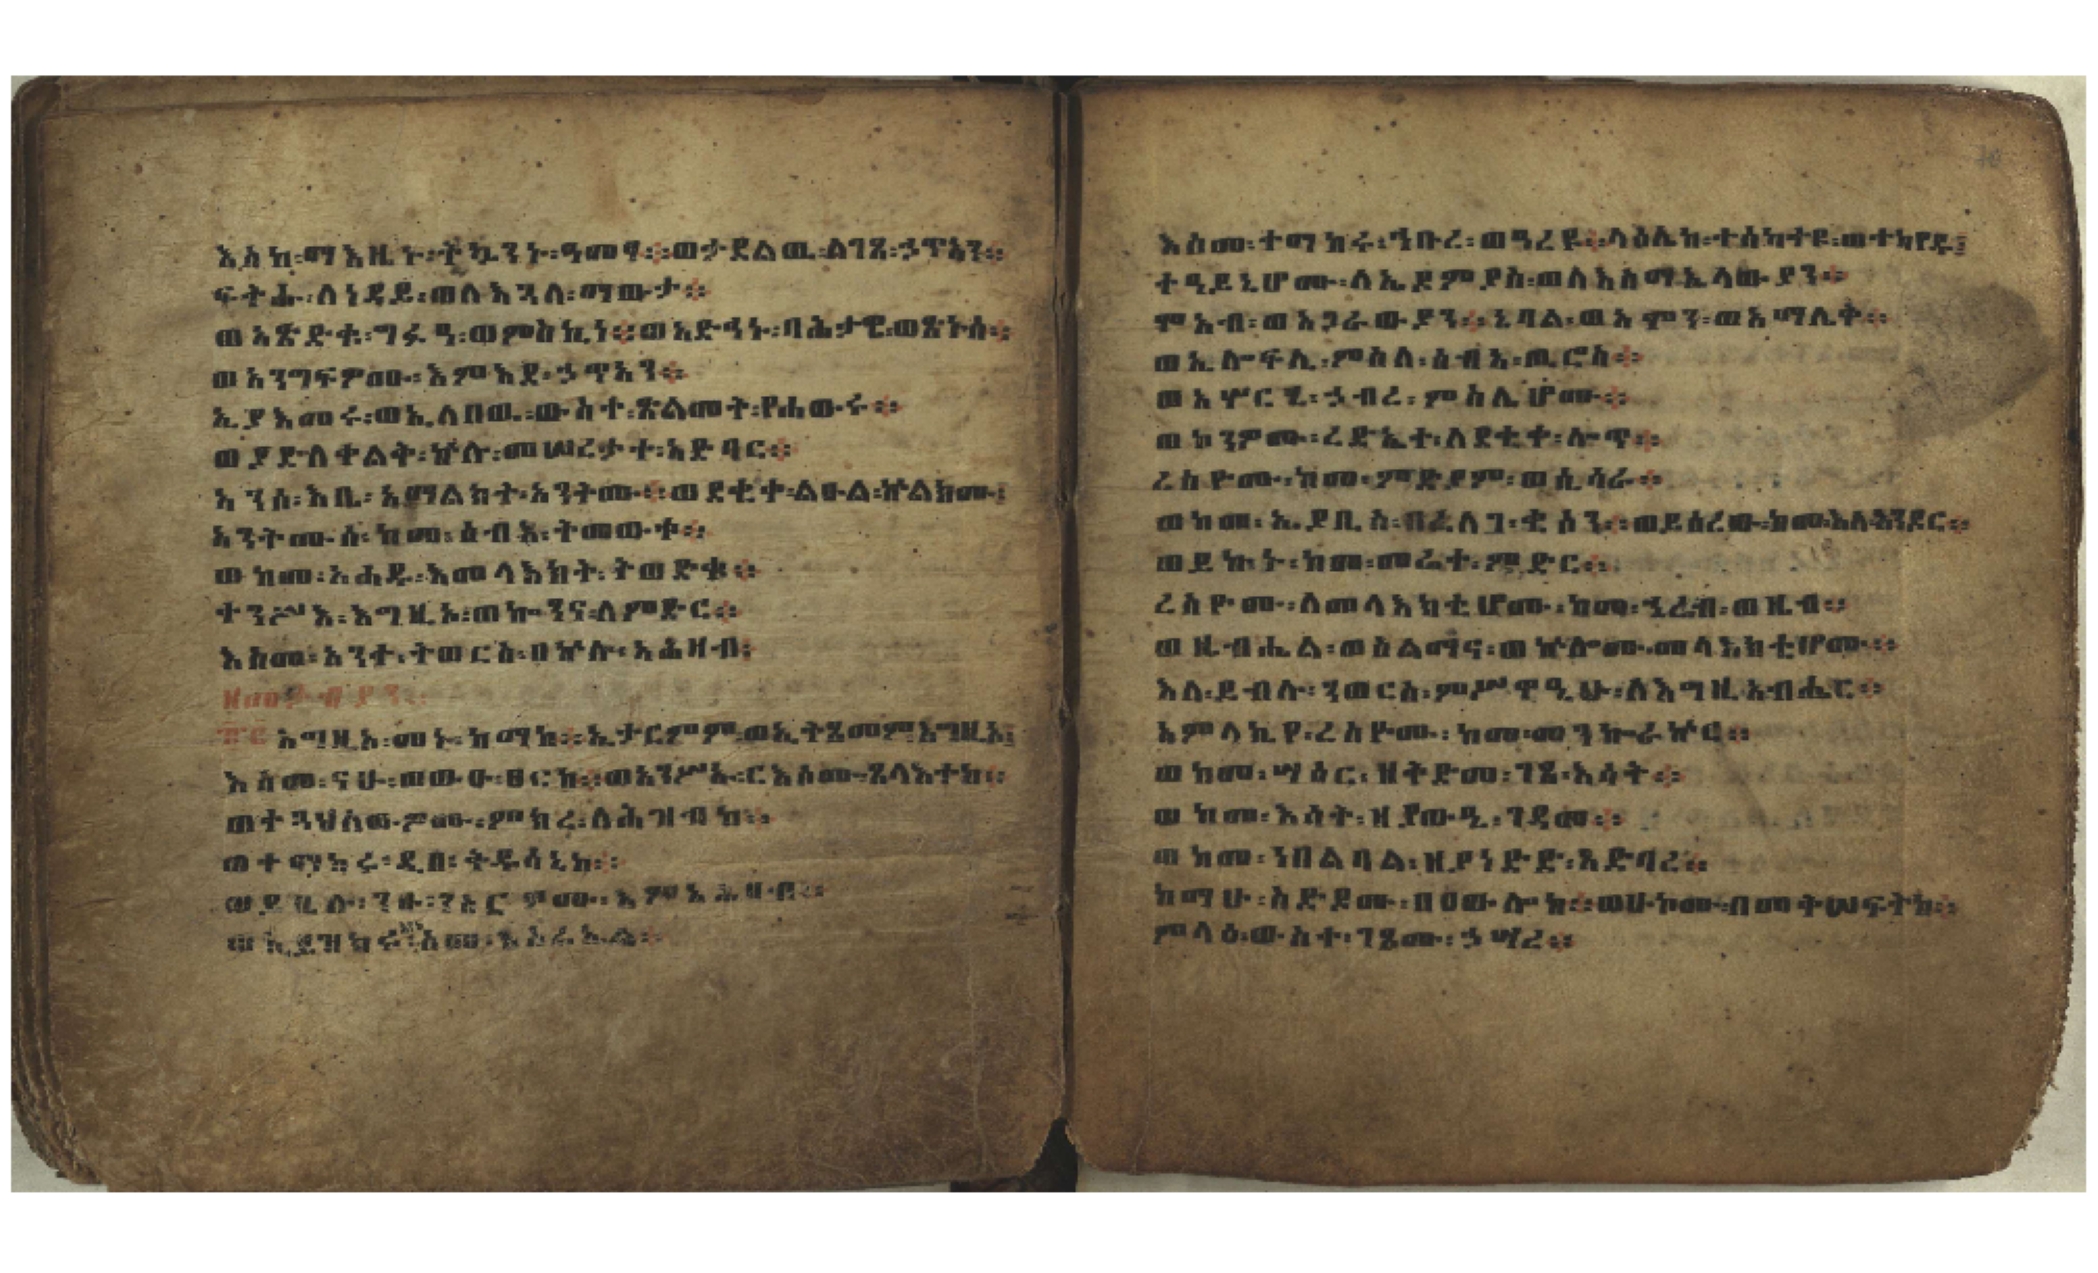 እስከ፡ማእዜኑ፡ትኴንኑ፡ዓመፃ፡፡ወታደልዉ፡ለገጸ፡ኃጥኣን።
ፍትሑ፡ለነዳይ፡ወለእጓለ፡ማውታ።
ወአጽድቁ፡ግፉዓ፡ወምስኪነ።ወአድኅኑ፡ባሕታዌ፡ወጽኑሰ።
ወአንግፍዎሙ፡እምእደ፡ኃጥኣን።
ኢያእመሩ፡ወኢለበዉ፡ውስተ፡ጽልመት፡የሐውሩ።
ወያድለቀልቅ፡ኵሉ፡መሠረታተ፡አድባር።
አንሰ፡እቤ፡አማልክት፡አንትሙ።ወደቂቀ፡ልዑል፡ኵልክሙ፡
አንትሙሰ፡ከመ፡ሰብእ፡ትመውቱ።
ወከመ፡አሐዱ፡እመላእክት፡ትወድቁ።
ተንሥእ፡እግዚኦ፡ወኰንና፡ለምድር።
እስመ፡አንተ፡ትወርስ፡በኵሉ፡አሕዛብ፡
እግዚኦ፡መኑ፡ከማከ።ኢታርምም፡ወኢትጸመም፡እግዚኦ፡
እስመ፡ናሁ፡ወውዑ፡ፀርከ።ወአንሥኡ፡ርእሶሙ፡ጸላእተከ።
ወተጓህለውዎሙ፡ምክረ፡ለሕዝብከ።
ወተማከሩ፡ዲበ፡ቅዱሳኒከ።
ወይቤሉ፡ንዑ፡ንሠርዎሙ፡እምአሕዛብ።
ወኢይዝክሩ፡እመ፡እስራኤል።
እስመ፡ተማከሩ፡ኅቡረ፡ወዓረዩ።ላዕሌከ፡ተሰካተዩ፡ወተካየዱ፡
ተዓይኒሆሙ፡ለኢዶምያስ፡ወለእስማኤላውያን።
ሞአብ፡ወአጋራውያን።ጌባል፡ወአሞን፡ወአማሌቅ።
ወኢሎፍሊ፡ምስለ፡ሰብአ፡ጢሮስ።
ወአሦርኒ፡ኃብረ፡ምስሌሆሙ።
ወኮንዎሙ፡ረድኤተ፡ለደቂቀ፡ሎጥ።
ረስዮሙ፡ከመ፡ምድያም፡ወሲሳራ።
ወከመ፡ኢያቢስ፡በፈለገ፡ቂሶን።ወይሠረው፡ከመ፡እለ፡እንዶር።
ወይኩኑ፡ከመ፡መሬተ፡ምድር።
ረስዮሙ፡ለመላእክቲሆሙ፡ከመ፡ሄሬብ፡ወዜብ።
ወዜብሔል፡ወስልማና፡ወኵሎሙ፡መላእክቲሆሙ።
እለ፡ይብሉ፡ንወርስ፡ምሥዋዒሁ፡ለእግዚአብሔር።
አምላኪየ፡ረስዮሙ፡ከመ፡መንኰራኵር።
ወከመ፡ሣዕር፡ዘቅድመ፡ገጸ፡እሳት።
ወከመ፡እሳት፡ዘያውዒ፡ገዳመ።
ወከመ፡ነበልባል፡ዘያነድድ፡አድባረ።
ከማሁ፡ስድዶሙ፡በዐውሎከ።ወሁኮሙ፡በመቅሠፍትከ።
ምላዕ፡ውስተ፡ገጾሙ፡ኃሣረ።